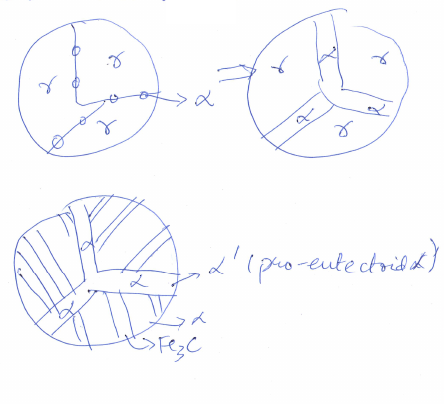 γ γ γ
→ α
⇒
γ α γ
α α
γ
α
α → α' (pro-eutectoid α)
α → α
→ Fe3C